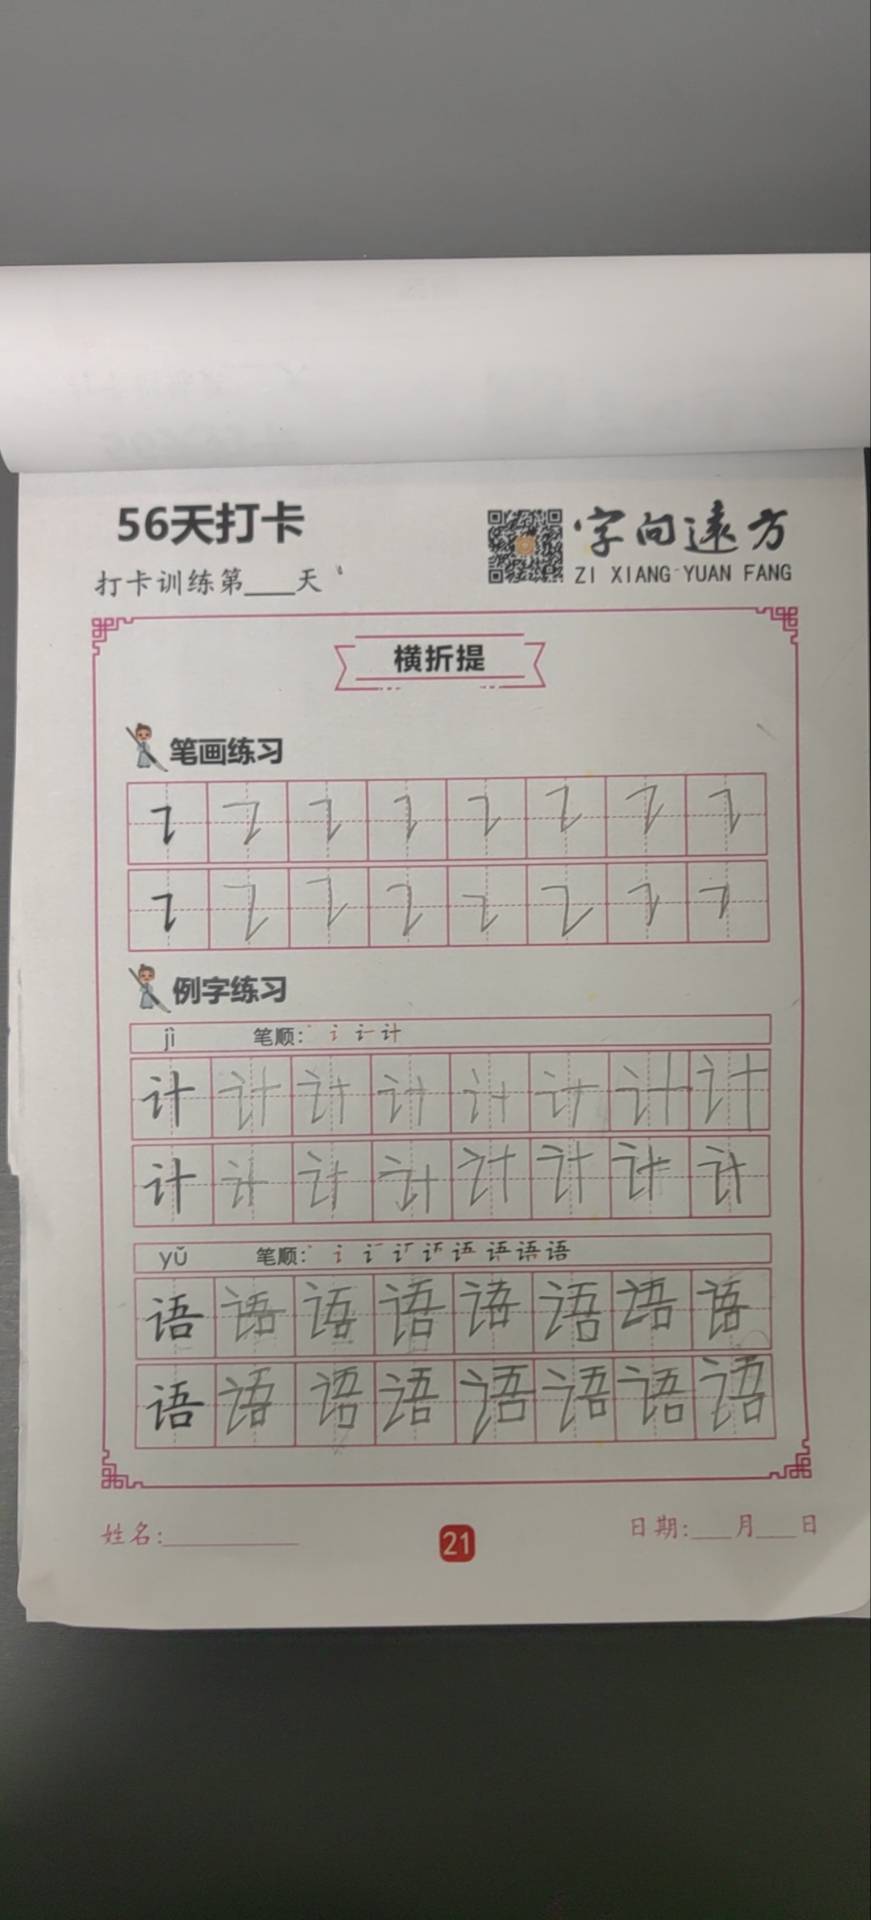 56天打卡
字向远方
打卡训练第____天
ZI XIANG YUAN FANG
横折提
笔画练习
例字练习
jì 笔顺: 计
计 计 计 计 计 计 计 计
计 计 计 计 计 计 计 计
yǔ 笔顺: 语
语 语 语 语 语 语 语 语
语 语 语 语 语 语 语 语
姓名:
21
日期:____月____日